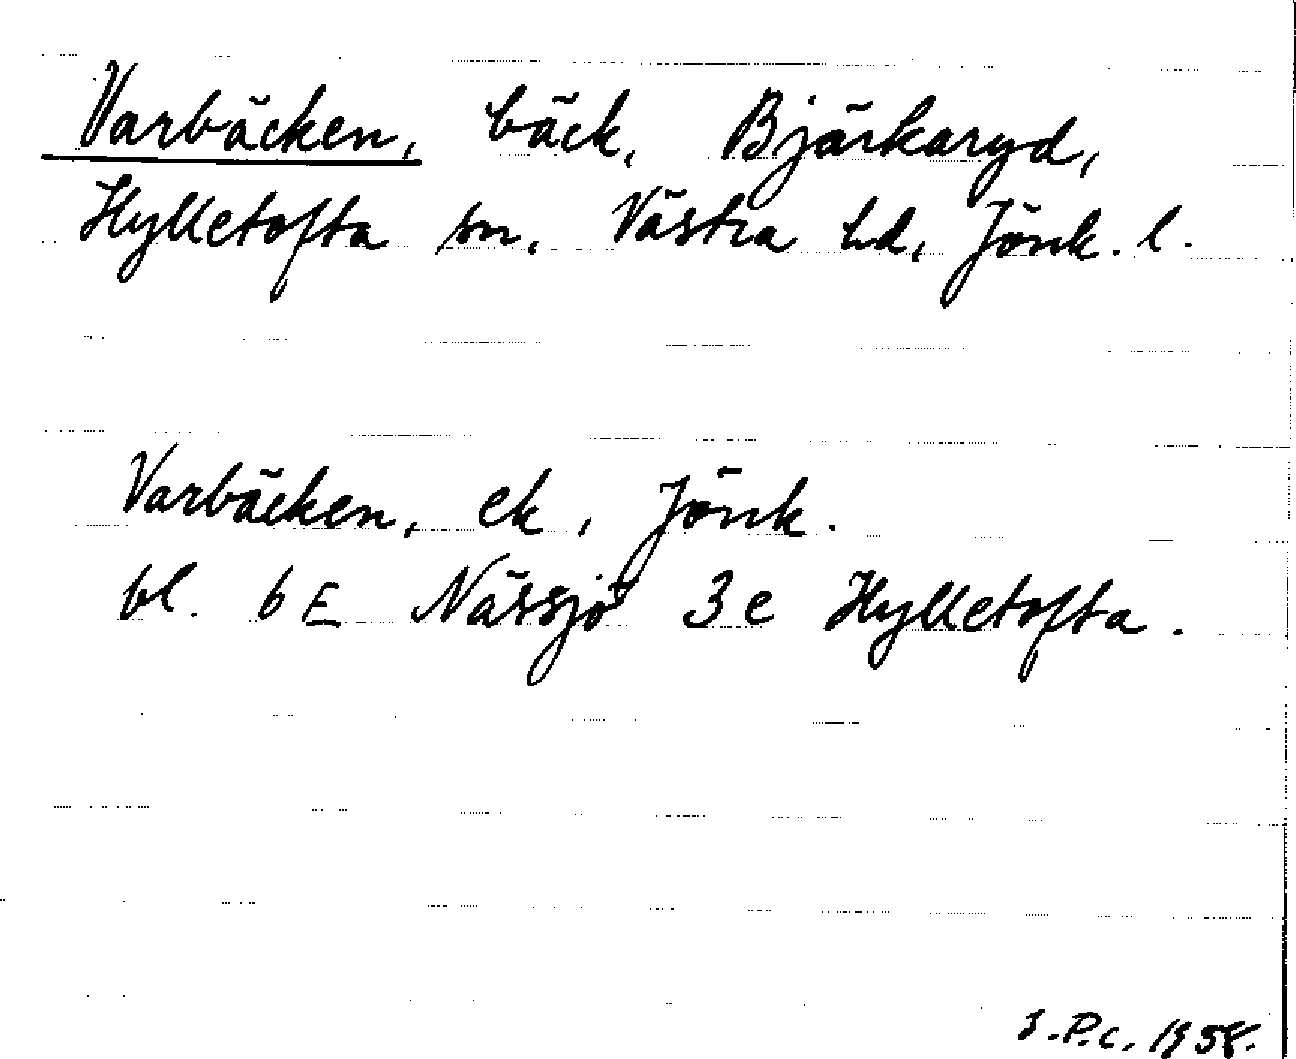 Varbäcken, bäck, Bjärkaryd,
Hylletofta sn, Västra hd, Jönk. l.
Varbäcken, ek, Jönk.
bl. 6 E Nässjö 3 e Hylletofta.
J.P.c. 1958.